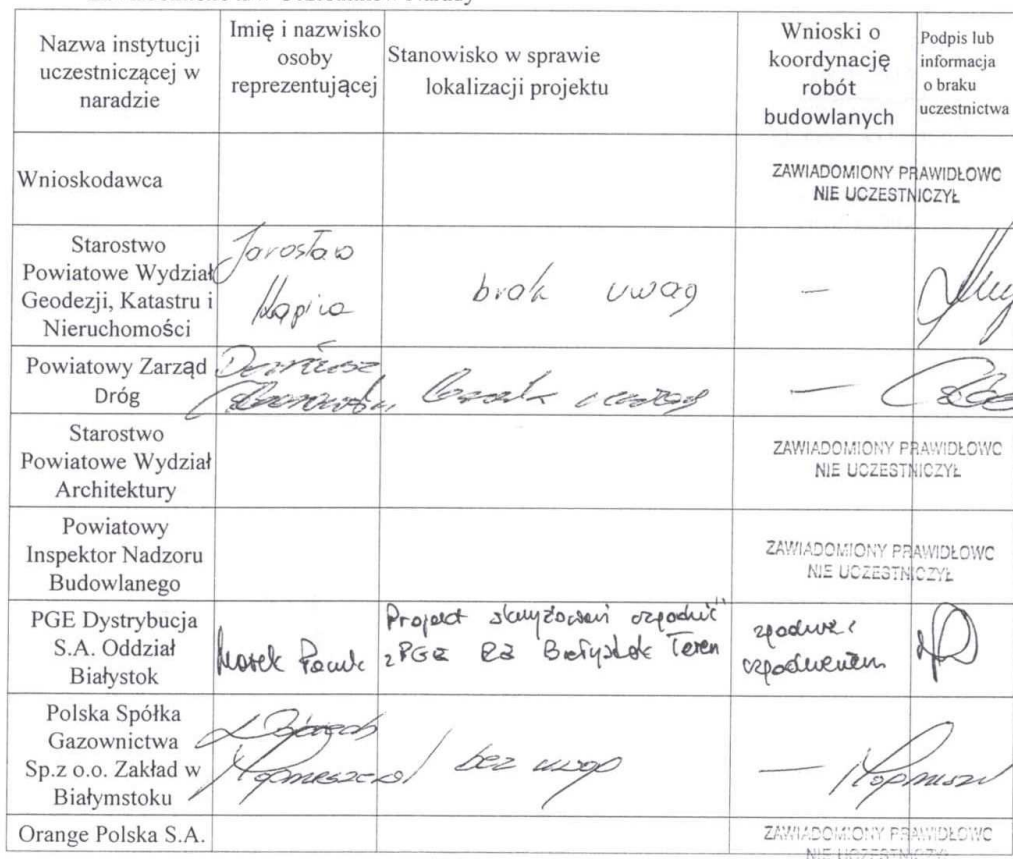 Nazwa instytucji
uczestniczącej w
naradzie
Imię i nazwisko
osoby
reprezentującej
Stanowisko w sprawie
lokalizacji projektu
Wnioski o
koordynację
robót
budowlanych
Podpis lub
informacja
o braku
uczestnictwa
Wnioskodawca
ZAWIADOMIONY PRAWIDŁOWO
NIE UCZESTNICZYŁ
Starostwo
Powiatowe Wydział
Geodezji, Katastru i
Nieruchomości
Jarosław
brak uwag
—
Powiatowy Zarząd
Dróg
Dariusz
brak uwag
—
Starostwo
Powiatowe Wydział
Architektury
ZAWIADOMIONY PRAWIDŁOWO
NIE UCZESTNICZYŁ
Powiatowy
Inspektor Nadzoru
Budowlanego
ZAWIADOMIONY PRAWIDŁOWO
NIE UCZESTNICZYŁ
PGE Dystrybucja
S.A. Oddział
Białystok
Marek
Projekt skrzyżowań uzgodnić
z PGE RE Białystok Teren
zgodnie z
uzgodnieniem
Polska Spółka
Gazownictwa
Sp.z o.o. Zakład w
Białymstoku
bez uwag
—
Orange Polska S.A.
ZAWIADOMIONY PRAWIDŁOWO
NIE UCZESTNICZYŁ